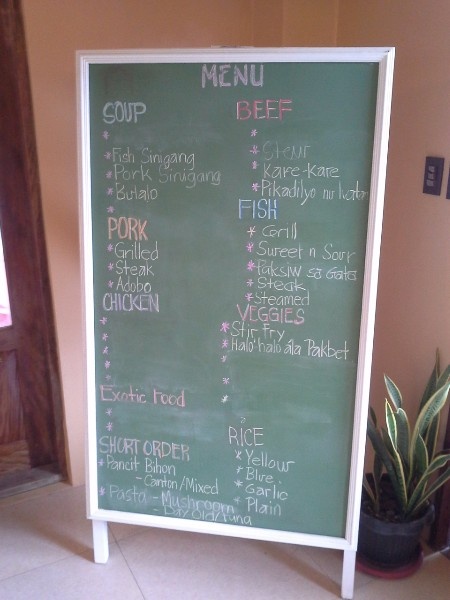 MENU
SOUP
* Fish Sinigang
* Pork Sinigang
* Bulalo
PORK
* Grilled
* Steak
* Adobo
CHICKEN
Exotic Food
SHORT ORDER
* Pancit Bihon
- Canton/Mixed
* Pasta - Mushroom
- Day Old/Tuna
BEEF
* Kare-Kare
* Pikadilyo
FISH
* Grill
* Sweet n Sour
* Paksiw sa Gata
* Steak
* Steamed
VEGGIES
* Stir Fry
* Halo' halo ala Pakbet
RICE
* Yellow
* Blue
* Garlic
* Plain